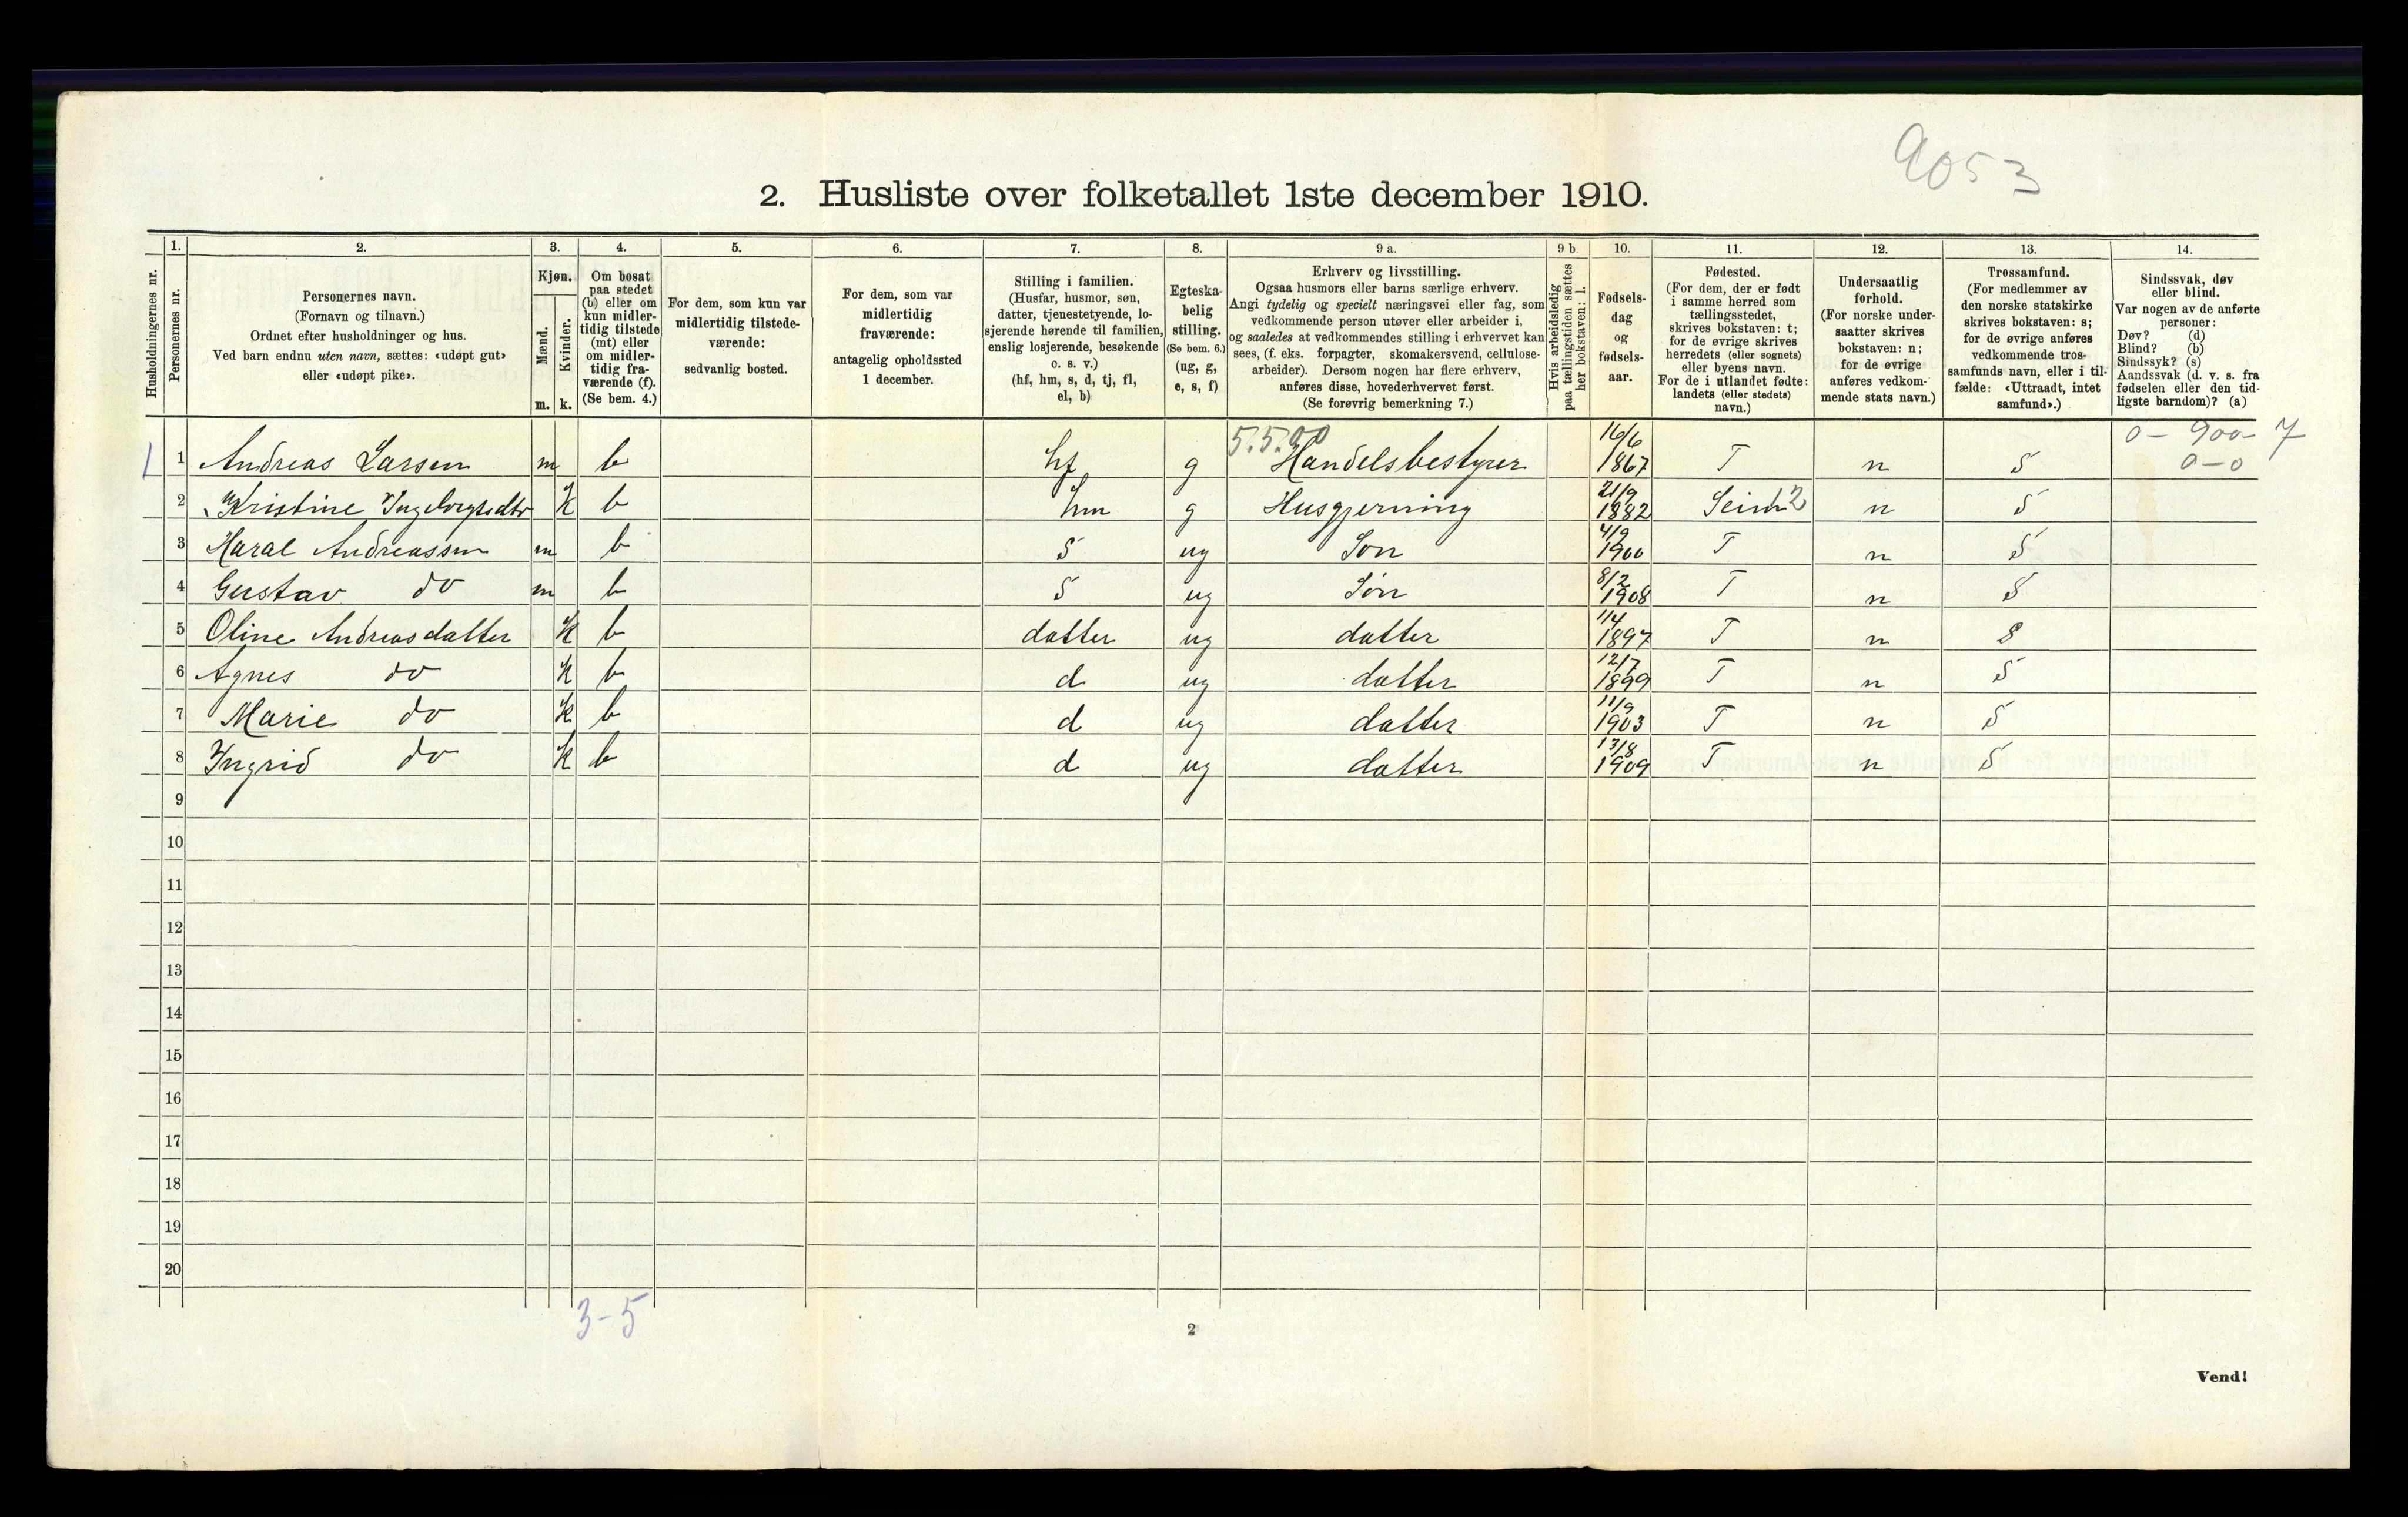 9053
2. Husliste over folketallet 1ste december 1910.
Husholdningernes nr.
1.
Personernes nr.
2.
Personernes navn.
(Fornavn og tilnavn.)
Ordnet efter husholdninger og hus.
Ved barn endnu uten navn, sættes: «udøpt gut»
eller «udøpt pike».
3.
Kjøn.
Mænd.
m.
Kvinder.
k.
4.
Om bosat
paa stedet
(b) eller om
kun midler-
tidig tilstede
(mt) eller
om midler-
tidig fra-
værende (f).
(Se bem. 4.)
5.
For dem, som kun var
midlertidig tilstede-
værende:
sedvanlig bosted.
6.
For dem, som var
midlertidig
fraværende:
antagelig opholdssted
1 december.
7.
Stilling i familien.
(Husfar, husmor, søn,
datter, tjenestetyende, lo-
sjerende hørende til familien,
enslig losjerende, besøkende
o. s. v.)
(hf, hm, s, d, tj, fl,
el, b)
8.
Egteska-
belig
stilling.
(Se bem. 6.)
(ug, g,
e, s, f)
9 a.
Erhverv og livsstilling.
Ogsaa husmors eller barns særlige erhverv.
Angi tydelig og specielt næringsvei eller fag, som
vedkommende person utøver eller arbeider i,
og saaledes at vedkommendes stilling i erhvervet kan
sees, (f. eks. forpagter, skomakersvend, cellulose-
arbeider). Dersom nogen har flere erhverv,
anføres disse, hovederhvervet først.
(Se forøvrig bemerkning 7.)
9 b
Hvis arbeidsledig
paa tællingstiden sættes
her bokstaven: l.
10.
Fødsels-
dag
og
fødsels-
aar.
11.
Fødested.
(For dem, der er født
i samme herred som
tællingsstedet,
skrives bokstaven: t;
for de øvrige skrives
herredets (eller sognets)
eller byens navn.
For de i utlandet fødte:
landets (eller stedets)
navn.)
12.
Undersaatlig
forhold.
(For norske under-
saatter skrives
bokstaven: n;
for de øvrige
anføres vedkom-
mende stats navn.)
13.
Trossamfund.
(For medlemmer av
den norske statskirke
skrives bokstaven: s;
for de øvrige anføres
vedkommende tros-
samfunds navn, eller i til-
fælde: «Uttraadt, intet
samfund».)
14.
Sindssvak, døv
eller blind.
Var nogen av de anførte
personer:
Døv? (d)
Blind? (b)
Sindssyk? (s)
Aandssvak (d. v. s. fra
fødselen eller den tid-
ligste barndom)? (a)
5.5.00 0 - 900 - 7
1 1 Andreas Larsen m b hf g Handelsbestyrer 16/6 1867 T n S 0-0
2 Kristine Ingeborgsdtr k b hm g Husgjerning 21/9 1882 Seim 2 n S
3 Haral Andreassen m b S ug Søn 4/9 1900 T n S
4 Gustav do m b S ug Søn 8/2 1908 T n S
5 Oline Andreasdatter k b datter ug datter 1/4 1897 T n S
6 Agnes do k b d ug datter 12/7 1899 T n S
7 Marie do k b d ug datter 11/9 1903 T n S
8 Ingrid do k b d ug datter 13/8 1909 T n S
9
10
11
12
13
14
15
16
17
18
19
20
3-5
2
Vend!